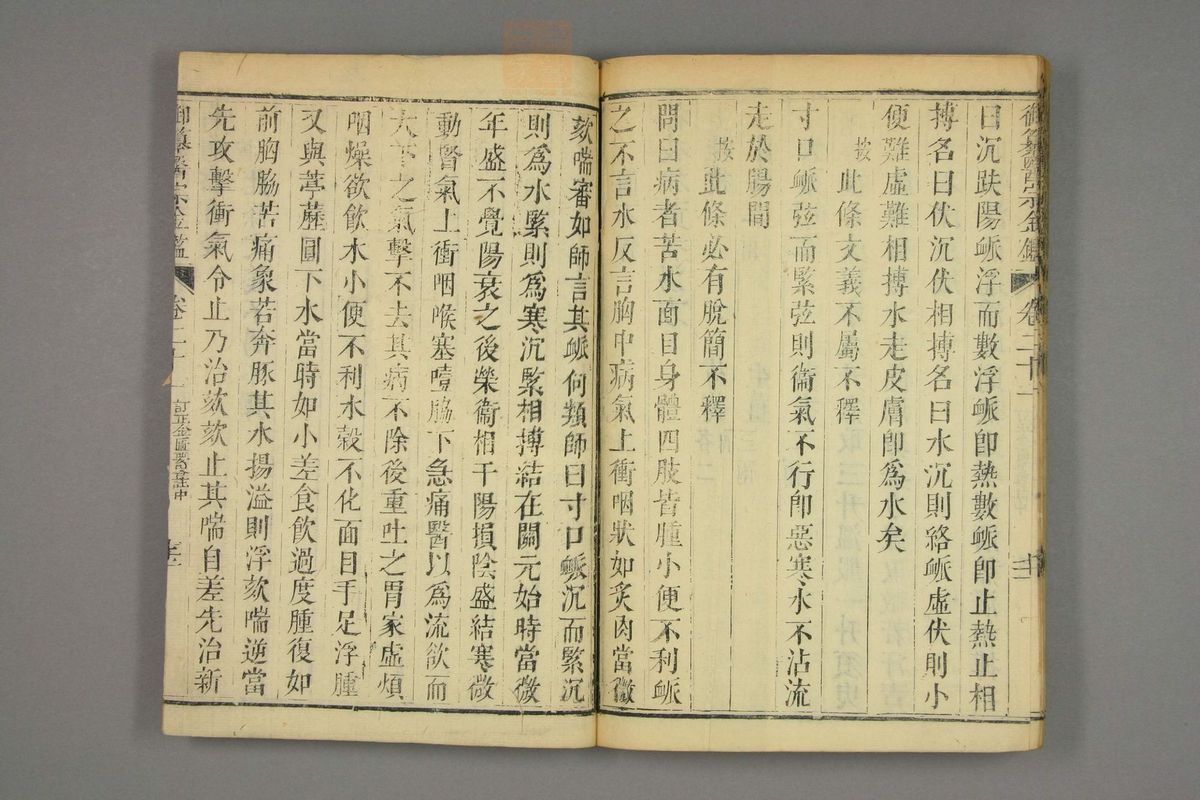 御纂醫宗金鑑 卷二十一
曰沉趺陽脈浮而數浮脈卽熱數脈卽止熱止相
搏名曰伏沉伏相搏名曰水沉則絡脈虛伏則小
便難虛難相搏水走皮膚卽爲水矣
按此條文義不屬不釋
寸口脈弦而緊弦則衞氣不行卽惡寒水不沾流
走於腸間
按此條必有脫簡不釋
問曰病者苦水面目身體四肢皆腫小便不利脈
之不言水反言胸中病氣上衝咽狀如炙肉當微
欬喘審如師言其脈何類師曰寸口脈沉而緊沉
則爲水緊則爲寒沉緊相搏結在關元始時當微
年盛不覺陽衰之後榮衞相干陽損陰盛結寒微
動腎氣上衝咽喉塞噎脇下急痛醫以爲流飮而
大下之氣擊不去其病不除後重吐之胃家虛煩
咽燥欲飮水小便不利水穀不化面目手足浮腫
又與葶藶圓下水當時如小差食飮過度腫復如
前胸脇苦痛象若奔豚其水揚溢則浮欬喘逆當
先攻擊衝氣令止乃治欬欬止其喘自差先治新
御纂醫宗金鑑 卷二十一 訂正金匱要畧註中